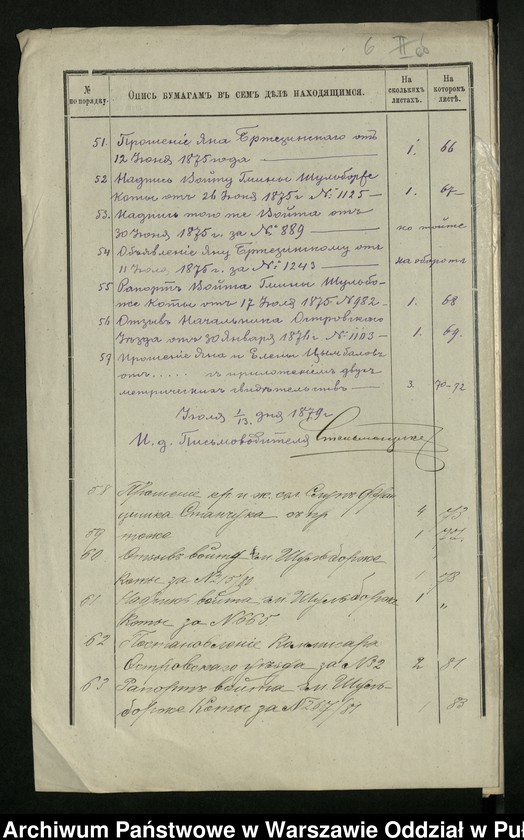 6 II
№ по порядку.
Опись бумагамъ въ семъ дѣлѣ находящимся.
На сколькихъ листахъ.
На которомъ листѣ.
51. Прошеніе Яна Бржезинскаго отъ
12 Іюня 1875 года 1. 66
52. Надпись Войту Гмины Шульборже
Коты отъ 26 Іюня 1875 г. № 1125 1. 67
53. Надпись того же Войта отъ
30 Іюня 1875 г. за № 889
54 Объявленіе Яну Бржезинскому отъ
11 Іюля 1875 г. за № 1243 на оборотѣ
55 Рапортъ Войта Гмины Шульбо-
же Коты отъ 17 Іюля 1875 № 982 1. 68
56 Отзывъ Начальника Островскаго
Уѣзда отъ 30 Января 1876 г. № 1103 1. 69.
57 Прошеніе Яна и Елены Цымбаловъ
отъ..... съ приложеніемъ двухъ
метрическихъ свидѣтельствъ 3. 70-72
Іюля 1/13. дня 1879 г
И. д. Письмоводителя
58 Прошеніе кр. и ж.
Станчука 4 73
59 тоже 1 77
60 Отзывъ войту гм Шульборже
Коты за № 1 78
61 Надпись войта гм Шульборже 1 "
Коты за № 665
62 Постановленіе Коммисара
Островскаго уѣзда за № 2 2 81
63 Рапортъ войта гм Шуль-
борже Коты за № 267/81 1 83
Archiwum Państwowe w Warszawie Oddział w Puł